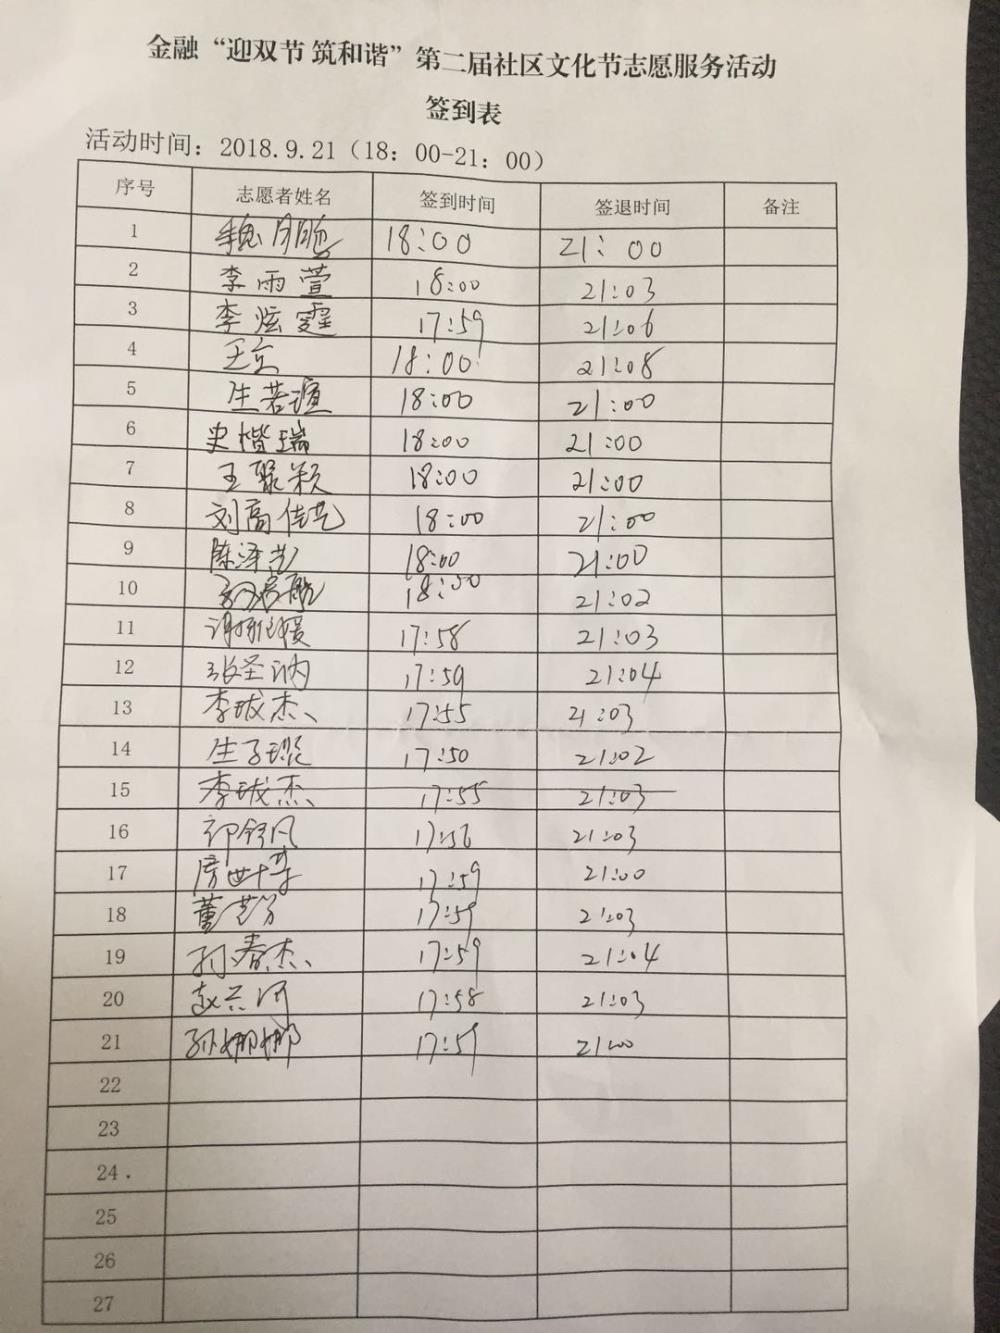 金融“迎双节 筑和谐”第二届社区文化节志愿服务活动
签到表
活动时间：2018.9.21（18：00-21：00）
序号 志愿者姓名 签到时间 签退时间 备注
1 18:00 21:00
2 李雨萱 18:00 21:03
3 李炫霆 17:59 21:06
4 王京 18:00 21:08
5 生若瑄 18:00 21:00
6 史楷瑞 18:00 21:00
7 王聚颖 18:00 21:00
8 刘高佳艺 18:00 21:00
9 陈泽艺 18:00 21:00
10 18:00 21:02
11 17:58 21:03
12 张圣讷 17:59 21:04
13 李珑杰 17:55 21:03
14 生子璇 17:50 21:02
15 李珑杰 17:55 21:03
16 17:56 21:03
17 17:59 21:00
18 董艺 17:59 21:03
19 孙春杰 17:59 21:04
20 赵兰河 17:58 21:03
21 孙娜娜 17:59 21:00
22
23
24
25
26
27